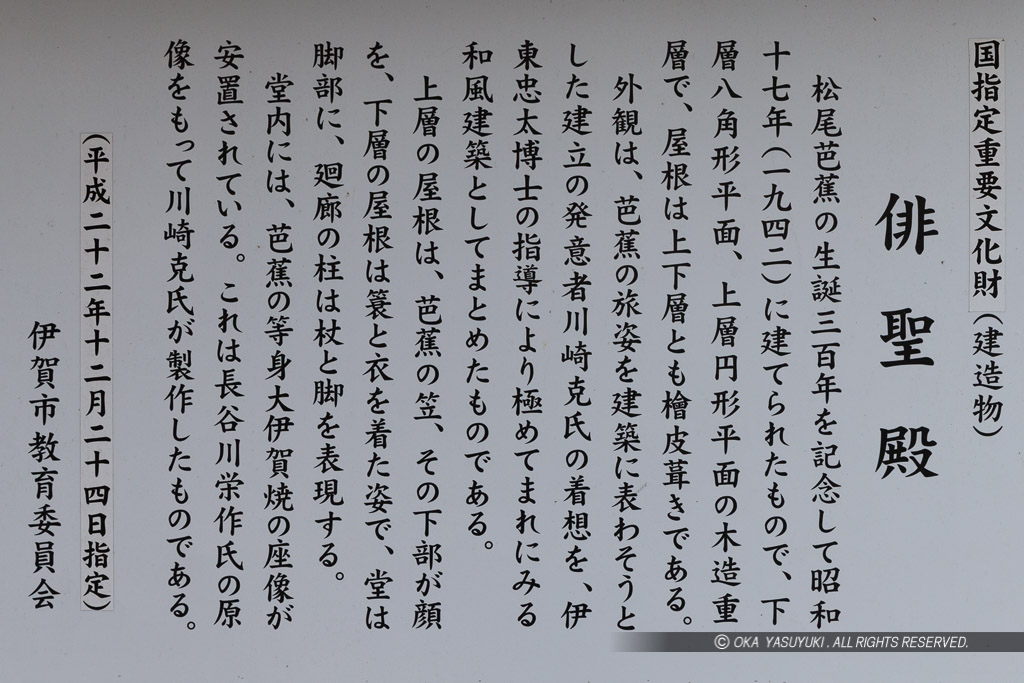 国指定重要文化財(建造物)
俳聖殿
松尾芭蕉の生誕三百年を記念して昭和
十七年(一九四二)に建てられたもので、下
層八角形平面、上層円形平面の木造重
層で、屋根は上下層とも檜皮葺きである。
外観は、芭蕉の旅姿を建築に表わそうと
した建立の発意者川崎克氏の着想を、伊
東忠太博士の指導により極めてまれにみる
和風建築としてまとめたものである。
上層の屋根は、芭蕉の笠、その下部が顔
を、下層の屋根は簑と衣を着た姿で、堂は
脚部に、廻廊の柱は杖と脚を表現する。
堂内には、芭蕉の等身大伊賀焼の座像が
安置されている。これは長谷川栄作氏の原
像をもって川崎克氏が製作したものである。
(平成二十二年十二月二十四日指定)
伊賀市教育委員会
© OKA YASUYUKI. ALL RIGHTS RESERVED.